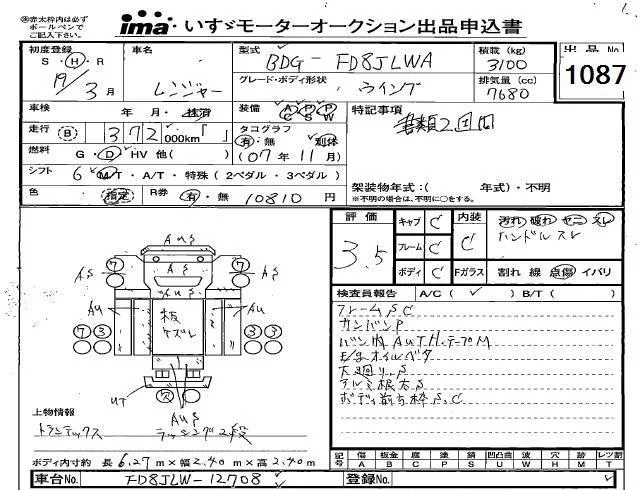 ※赤太枠内は必ず
ボールペンで
ご記入下さい。
ima いすゞモーターオークション出品申込書
初度登録 車名 型式 積載 (kg) 出品 No
S・H・R
19/3月
レンジャー
BDG-FD8JLWA
3100
1087
グレード・ボディ形状
ウイング
排気量 (cc)
7680
車検 年 月・抹消
装備 AC PS PW
特記事項
書類2回目
走行 B 372 000km「 」
タコグラフ
有・無 別体
(07年11月)
燃料 G・D・HV 他( )
シフト 6 MT・A/T・特殊 (2ペダル・3ペダル)
色 指定 R券 有・無 10810 円
架装物年式:( 年式)・不明
※不明の場合は、不明に○をする。
評価 3.5
キャブ C
フレーム C
ボディ C
内装 C
汚れ 破れ ヤニ スレ
ハンドルスレ
Fガラス 割れ 線 点傷 イバリ
検査員報告 A/C ( ✓ ) B/T ( )
フレームS C
カンバンP
バン内AUTH.テープM
E/gオイルベタ
大廻り.S
アルミ根太S
ボディ前方枠S,C
AUS
⑦ ⑦
AS AS
AUS
AU AU
板
ケズレ
⑦③ ③③
UT
AUS
上物情報
トランテックス
ラッシング2段
ボディ内寸約 長6.27m×幅2.40m×高2.40m
記号 傷 A 板金 B 腐 C 塗 P 錆 S 凹凸曲 U ✕ W 穴 H 跡 M レツ割 T
車台No. FD8JLW-12708
登録No.